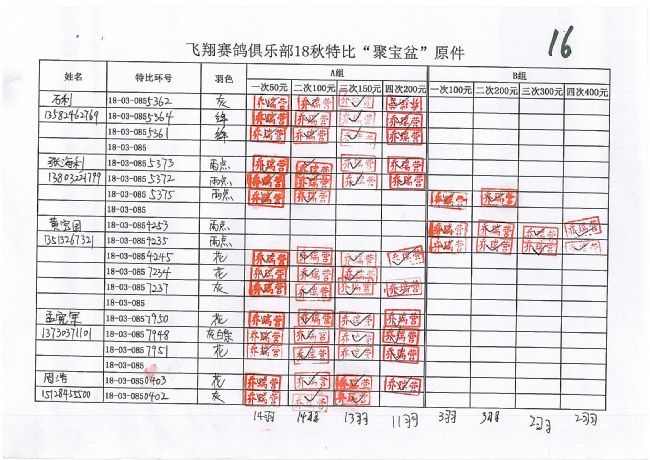 飞翔赛鸽俱乐部18秋特比“聚宝盆”原件
16
姓名 特比环号 羽色 A组 B组
一次50元 二次100元 三次150元 四次200元 一次100元 二次200元 三次300元 四次400元
石利 18-03-0855362 灰 乔瑞营 乔瑞营
13582462769 18-03-0855364 绛 乔瑞营 乔瑞营 乔瑞营 乔瑞营
18-03-0855361 绛 乔瑞营 乔瑞营 乔瑞营 乔瑞营
18-03-085
张海利 18-03-0855373 雨点 乔瑞营 乔瑞营 乔瑞营 乔瑞营
13803221799 18-03-0855372 雨点 乔瑞营 乔瑞营 乔瑞营 乔瑞营
18-03-0855375 雨点 乔瑞营 乔瑞营 乔瑞营 乔瑞营
18-03-085
黄宝国 18-03-0859253 雨点 乔瑞营 乔瑞营 乔瑞营 乔瑞营
13513267321 18-03-0859235 雨点 乔瑞营 乔瑞营 乔瑞营 乔瑞营
18-03-0854245 花 乔瑞营 乔瑞营 乔瑞营 乔瑞营
18-03-0857234 花 乔瑞营 乔瑞营 乔瑞营 乔瑞营
18-03-0857237 灰 乔瑞营 乔瑞营 乔瑞营 乔瑞营
18-03-085
孟宪军 18-03-0857950 花 乔瑞营 乔瑞营 乔瑞营 乔瑞营
13730371101 18-03-0857948 灰白条 乔瑞营 乔瑞营 乔瑞营 乔瑞营
18-03-0857951 花 乔瑞营 乔瑞营 乔瑞营 乔瑞营
18-03-085
周浩 18-03-0850403 花 乔瑞营 乔瑞营 乔瑞营 乔瑞营
15128455500 18-03-0850402 灰 乔瑞营 乔瑞营 乔瑞营
14羽 14羽 13羽 11羽 3羽 3羽 2羽 2羽